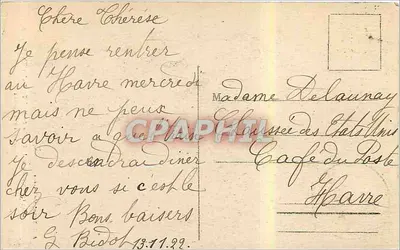 Chère Thérèse
Je pense rentrer
au Havre mercredi
mais ne peux
savoir a
Je descendrai diner
chez vous si c'est le
soir Bons baisers
G Bidot 13.11.22.
Madame Delaunay
Chaussée des Etats Unis
Café du Poste
Havre
CARTAPHIL